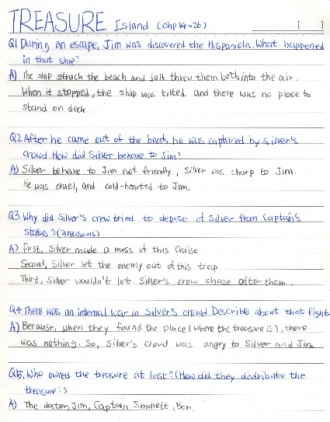 TREASURE Island (chp 19~26) [ ]
Q1 During an escape, Jim was discovered the Hispaniola. What happened
in that ship?
A) The ship struck the beach and jolt threw them both into the air.
When it stopped, the ship was tilted and there was no place to
stand on deck.
Q2 After he came out of the boat, he was captured by Silver's
crowd. How did Silver behave to Jim?
A) Silver behave to Jim not friendly, Silver was sharp to Jim.
He was cruel, and cold-hearted to Jim.
Q3 Why did Silver's crew tried to depose of Silver from Captain's
status? (3 reasons)
A) First, Silver made a mess of this cruise
Second, Silver let the enemy out of this trap
Third, Silver wouldn't let Silver's crew chase after them.
Q4 There was an internal war in Silver's crowd. Describe about that fight
A) Because, when they found the place (where the treasure is), there
was nothing. So, Silver's crowd was angry to Silver and Jim.
Q5. Who owned the treasure at last? (How did they distribute the
treasure?)
A) The doctor, Jim, Captain Smollett, Ben.